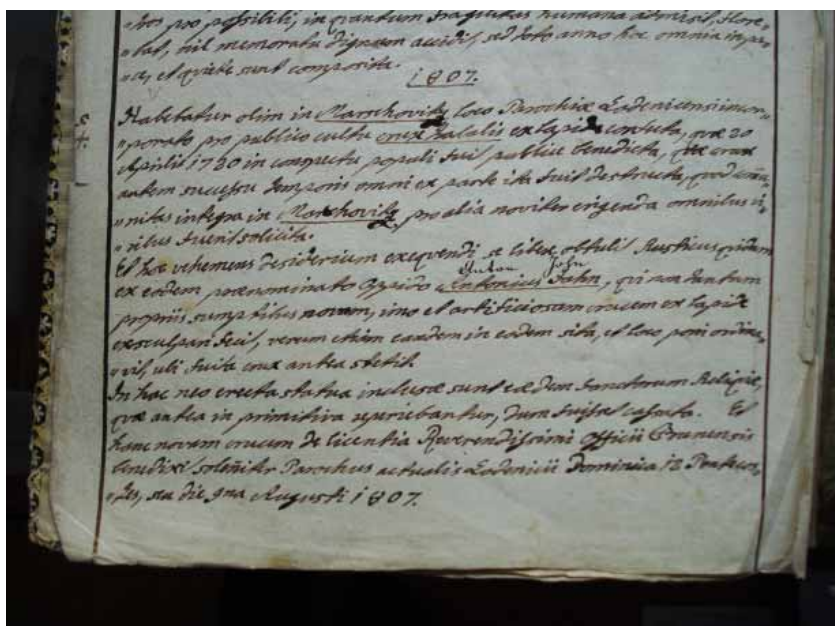 "bros pro possibili, in quantum fragilitas humana admisit, flore,
"bat, nil memoratu dignum accidit, sed toto anno hoc omnia in pa,
"ce, et quiete sunt composita.
1807.
Habebatur olim in Marschovitz loco Parochiæ Lodenicensi incor,
"porato pro publico cultu crux statalis ex lapide confecta, quæ 20
Aprilis 1720 in conspectu populi fuit publice benedicta, crux
autem successu temporis omni ex parte ita fuit destructa, quod commu,
"nitas integra in Marschovitz, pro alia noviter erigenda omnibus vi,
"ribus fuerit solicita.
Et hoc vehemens desiderium exequendi se libere obtulit Rusticus quidam
Anton John
ex eodem prænominato Oppido Antonius Jahn, qui non tantum
propriis sumptibus novam, imo et artificiosam crucem ex lapide
exsculpari fecit, verum etiam eandem in eodem situ, et loco poni ordina,
"vit, ubi fuita crux antea stetit.
In hac neo erecta statua inclusæ sunt eædem Sanctorum Reliquiæ,
quæ antea in primitiva reperiebantur, dum fuisset cassata. Et
hanc novam crucem de licentia Reverendissimi Officii Brunensis
benedixit solenniter Parochus actualis Lodenicii Dominica 12 Pentecos,
"tes, sta die 9na Augusti 1807.